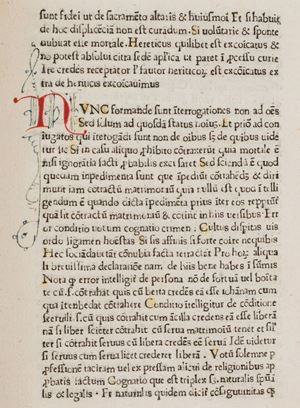 sunt fidei ut de sacramēto altaris & huiusmoi Et si habuit
de hoc displicētiā non est curādum. Si volūtarie & sponte
dubitat esse mortale. Hereticus quilibet est excōicatus &
no potest absolui citra sedē aplica ut patet ī pcessu curie
Itē credēs receptator & fautor heriticoɼ est excōicatus ex
tra de hericis excōicauimus
NVNC formande sunt īterrogationes non ad oēs
Sed solum ad quosdā status louēs. Et prīo ad con
iugatos qui īterogādi sunt non de oibus sed de quibus uide
tur sic Si in casu aliquo phibito cōtraxerūt quia mortale ē
nisi ignorātia facti pbabilis excusaret Sed sciendū ē quod
quedam inpedimenta sunt que īpediūt cōtrahēdū & diri
munt iam cōtractū matrimoniū quia nullū est quod ītelli
gendum ē quando dicta īpedimēta prius
qua līt cōtractū matrimoniū & cōtine in hiis versibus Er
ror conditio uotum cognatio crimen Cultus disparitas uis
ordo ligamen honestas Si sis affinis si forte coire nequibis
Hec sociādā uetāt cōnubia facta retractāt Pro hoɼ aliqua
li breuissima declaratiōe nam de hiis bene habes ī sūmis
Nota quod error intelligit de persona nō de fortuna uel boīta
te cū
qua ītenbedat cōtrahere Conditio ītelligitur de cōditione
seruili. s. cū quis cōtrahit cum ācilla credēs eā esse liberā
nā si liber scieter cōtrahit cū serua matrimoniū tenet et sil
ter si cōtrahit seruus cū libera credēs eā seruā Idē videtur
si seruus cum serua licet crederet liberā. Votū solemne p
pfessionē tacitam uel expressam alicui de religionibus ap
pbatis factum Cognatio que est triplex s. naturalis spūa
lis & legalis. Et naturalis quidem dicit